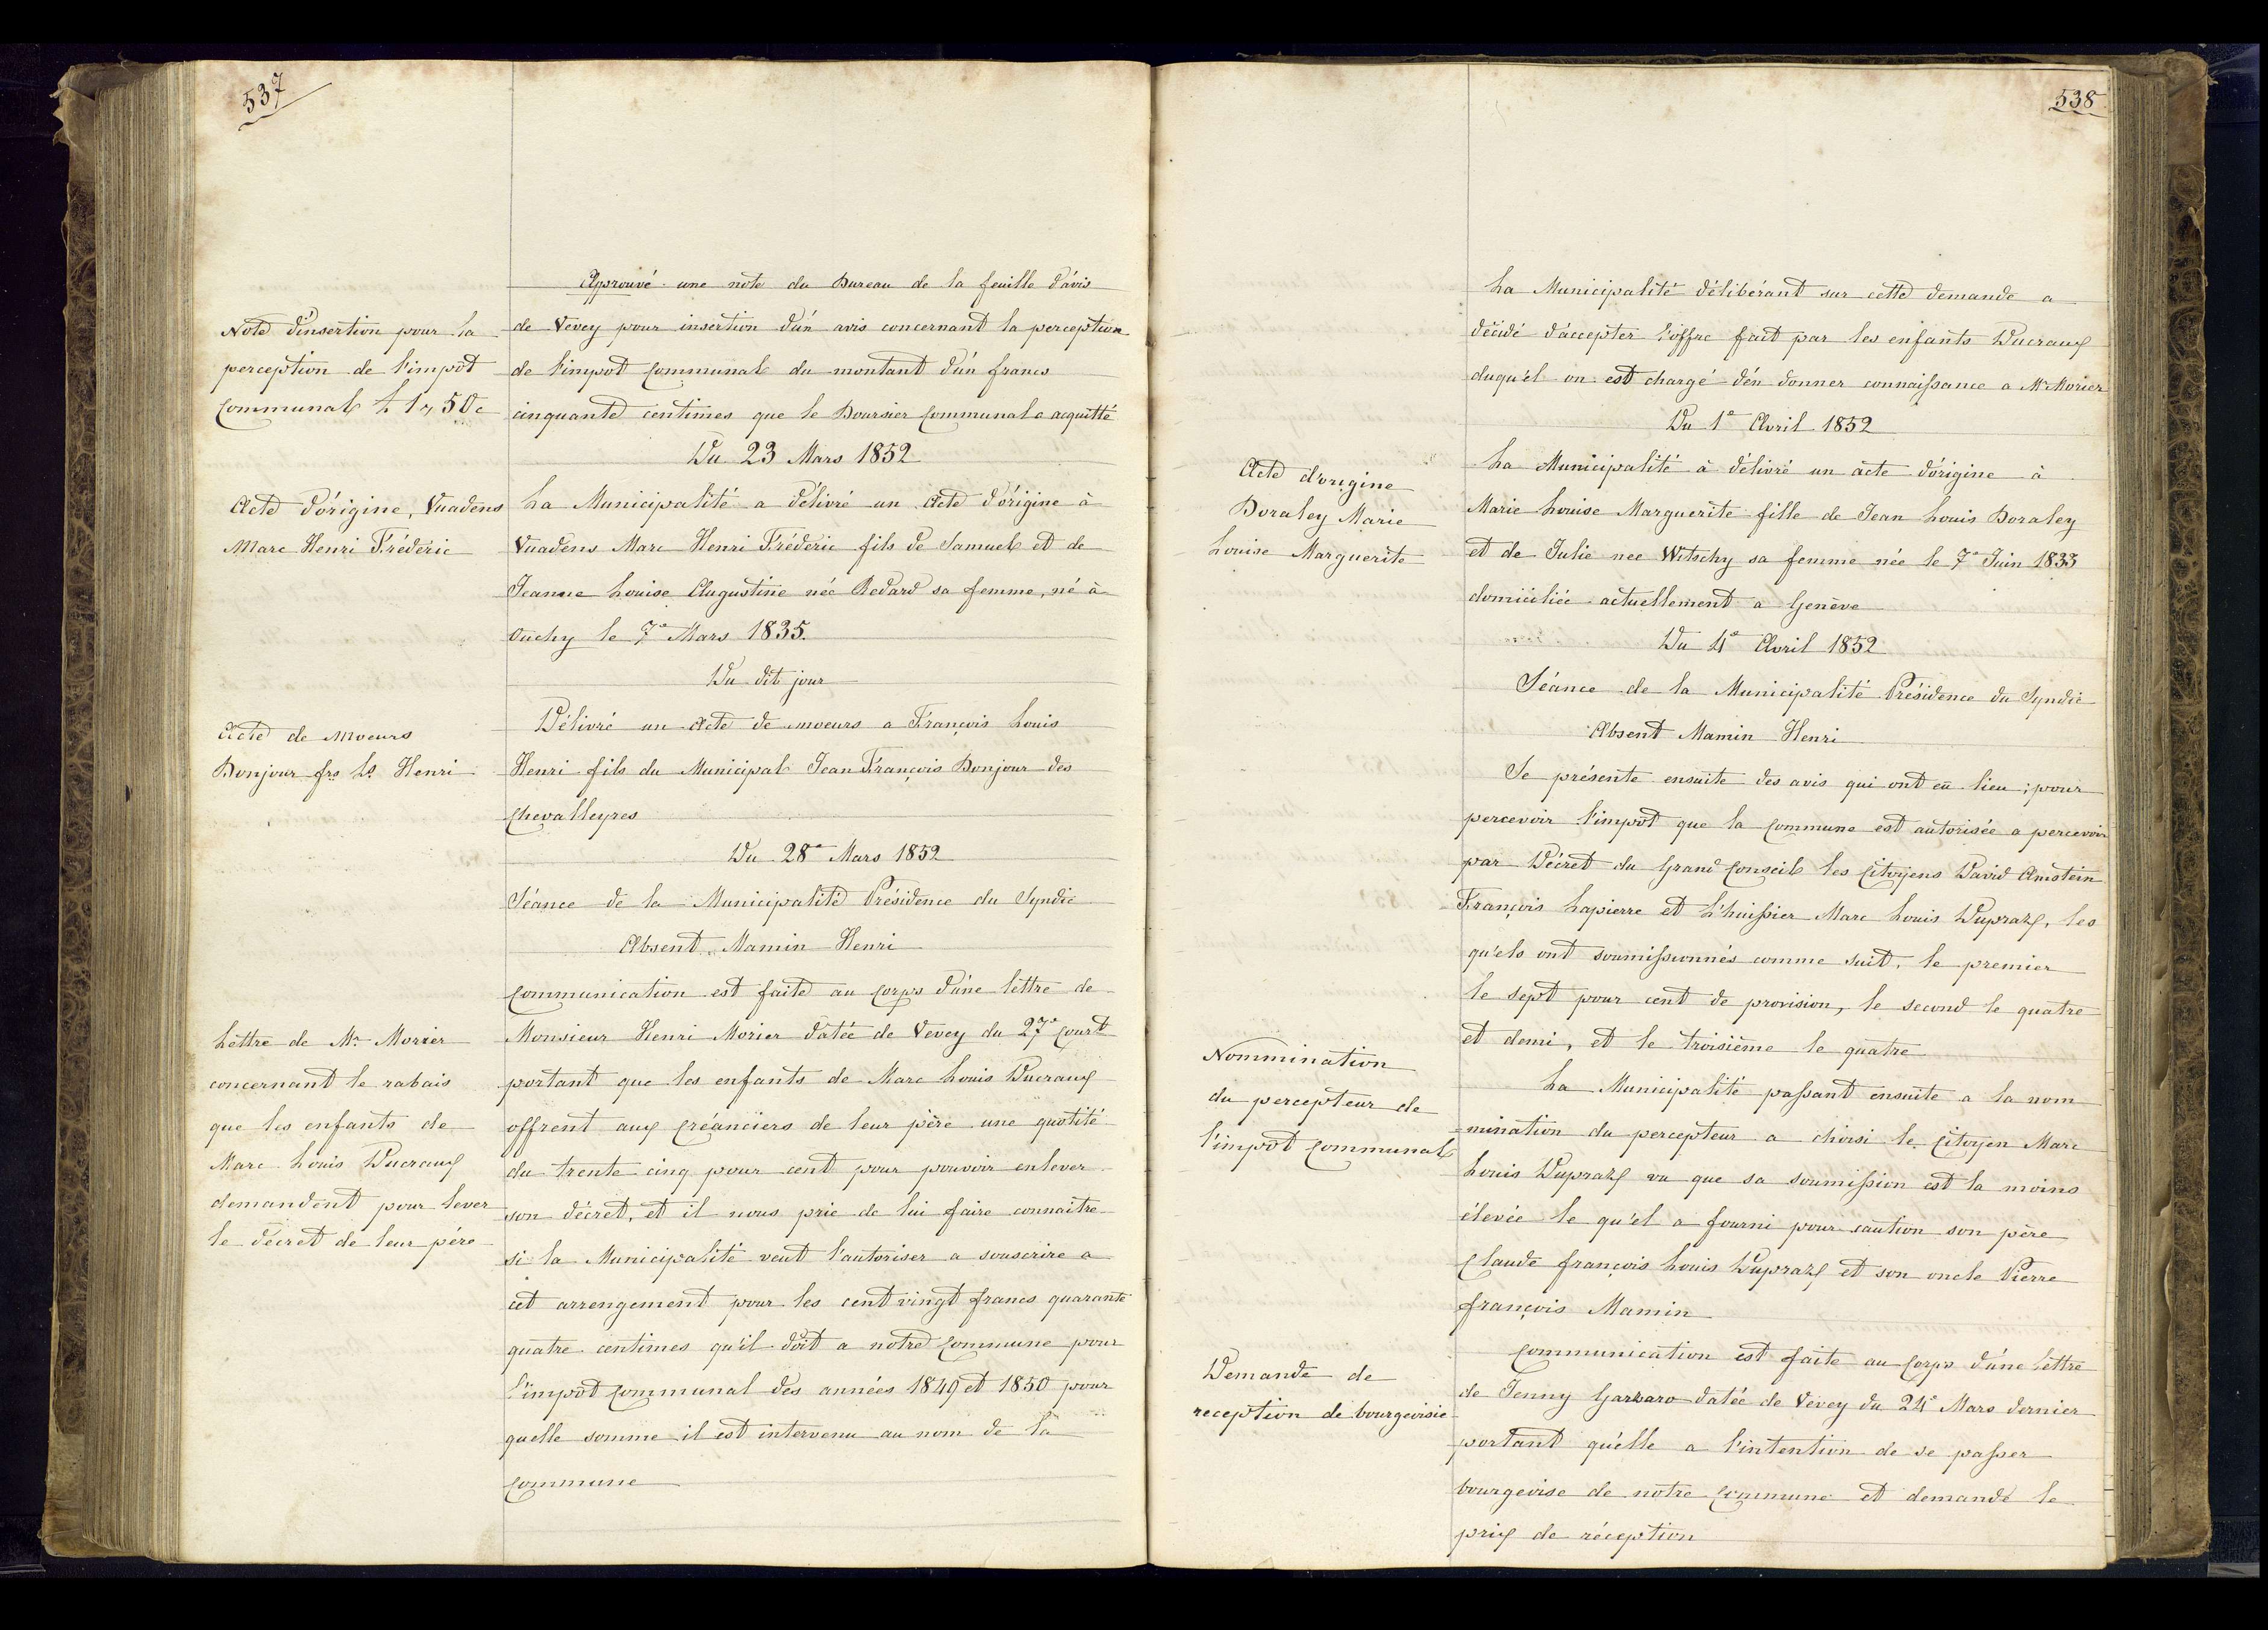 537
Approuvé une note du Bureau de la feuille d'avis
Note d'insertion pour la
perception de l'impôt
Communal
de Vevey pour insertion d'un avis concernant la perception
de l'impot Communal du montant d'un francs
cinquante centimes que le Boursier Communal a acquitté
Du 23 Mars 1852
Acte d'origine, Vuadens
Marc Henri Fréderic
La Municipalité a délivré un Acte d'origine à
Vuadens Marc Henri Fréderic fils de Samuel et de
Jeanne Louise Augustine née Redard sa femme, né à
Ouchy le 7e Mars 1835.
Du dit jour
Acte de Moeurs
Bonjour frs Ls Henri
Délivré un Acte de moeurs a François Louis
Henri fils du Municipal Jean François Bonjour des
Chevalleyres
Du 28e Mars 1852
Séance de la Municipalité Présidence du Syndic
Absent Mamin Henri
Lettre de Mr Morier
concernant le rabais
que les enfants de
Marc Louis Ducraux
demandent pour lever
le décret de leur père
Communication est faite au Corps d'une lettre de
Monsieur Henri Morier datée de Vevey du 27e Court
portant que les enfants de Marc Louis Ducraux
offrent aux Créanciers de leur père une quotité
du trente cinq pour cent pour pouvoir enlever
son décret, et il nous prie de lui faire connaitre
si la Municipalité veut l'autoriser a souscrire a
cet arrengement pour les cent vingt francs quarante
quatre centimes qu'il doit a notre Commune pour
l'impôt Communal des années 1849 et 1850 pour
quelle somme il est intervenu au nom de la
Commune
538
La Municipalité délibérant sur cette demande a
décidé d'accepter l'offre fait par les enfants Ducraux
duqu'el on est chargé d'en donner connaissance a Mr Morier
Du 1e Avril 1852
Acte d'origine
Doraley Marie
Louise Marguerite
La Municipalité à délivré un acte d'origine à
Marie Louise Marguerite fille de Jean Louis Doraley
et de Julie nee Witschy sa femme née le 7e Juin 1833
domiciliée actuellement a Genève
Du 4e Avril 1852
Séance de la Municipalité Présidence du Syndic
Absent Mamin Henri
Se présente ensuite des avis qui ont eu lieu; pour
percevoir l'impôt que la Commune est autorisée a percevoir
par Décret du Grand Conseil les Citoyens David Amstein
François Lapierre et L'huissier Marc Louis Dupraz, les
qu'els ont soumissionnés comme suit, le premier
le sept pour cent de provision, le second le quatre
et demi, et le troisième le quatre
Nommination
du percepteur de
l'impôt Communal
La Municipalité passant ensuite a la nom
-mination du percepteur a choisi le Citoyen Marc
Louis Dupraz vu que sa soumission est la moins
élevée le qu'el a fourni pour caution son père
Claude françois Louis Dupraz et son oncle Pierre
françois Mamin
Demande de
reception de bourgeoisie
Communication est faite au Corps d'une lettre
de Jenny Garraro datée de Vevey du 24e Mars dernier
portant qu'elle a l'intention de se passer
bourgeoise de notre Commune et demande le
prix de réception